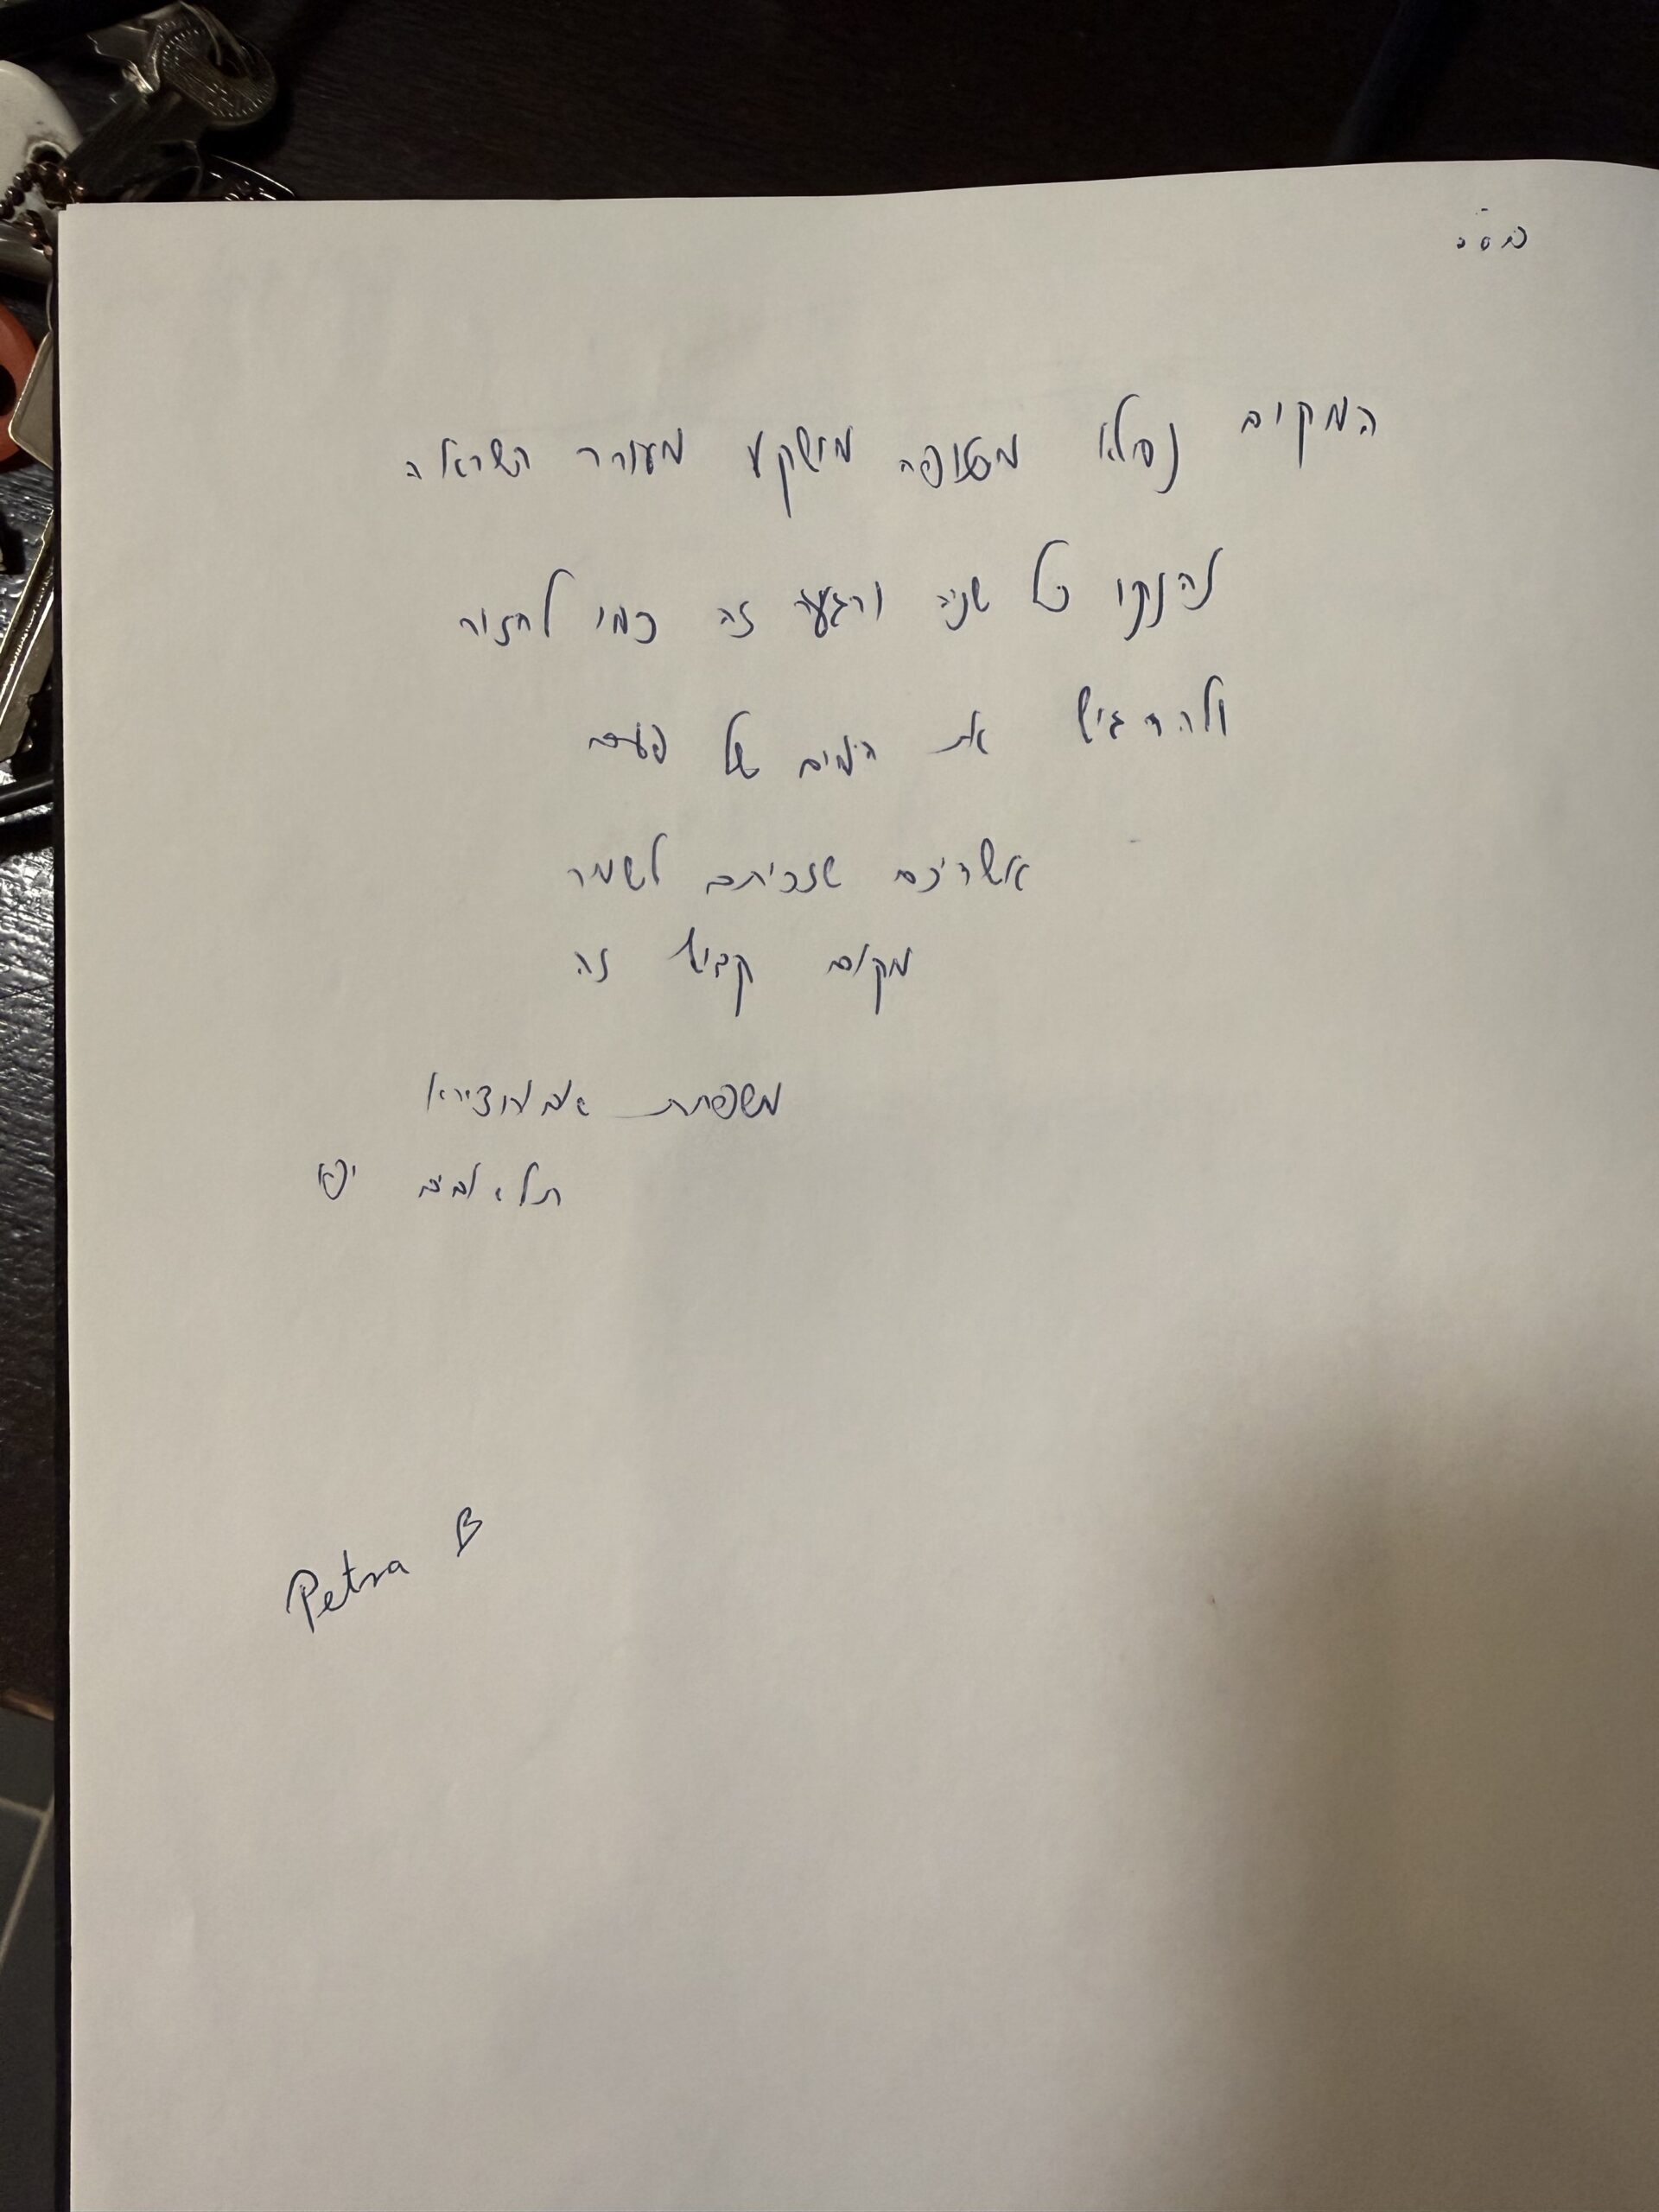 בס"ד
המקום נפלא מטופח מושקע מעורר השראה
נהננו כל שניה ורגע זה כמו לחזור
ולהרגיש את הימים של פעם
אשריכם שזכיתם לשמר
מקום קדוש זה
משפחת אבוחצירא
תל אביב יפו
Petra B